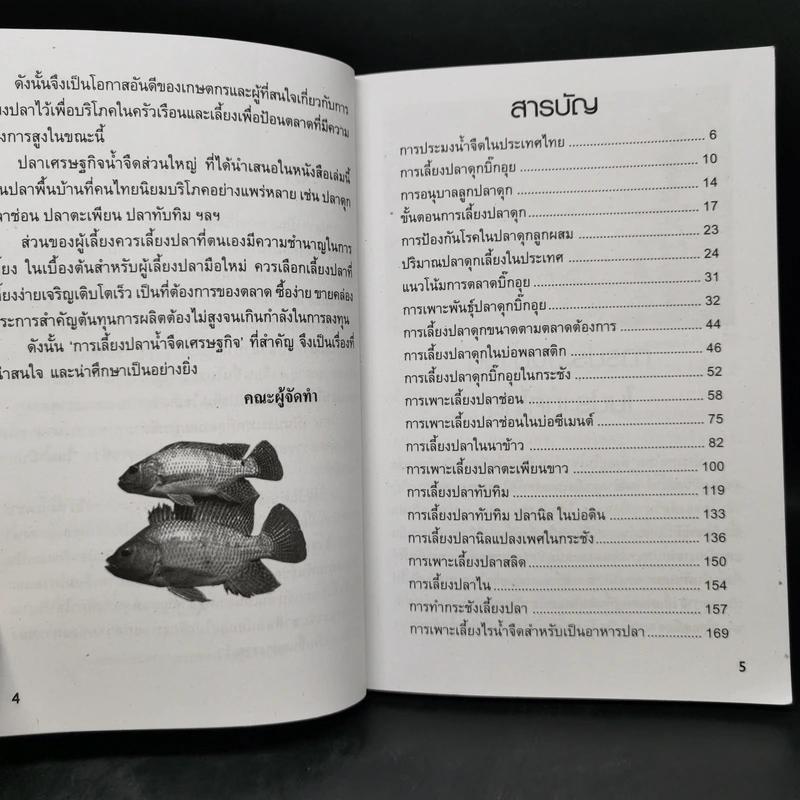 ดังนั้นจึงเป็นโอกาสอันดีของเกษตกรและผู้ที่สนใจเกี่ยวกับการ
ปลาไว้เพื่อบริโภคในครัวเรือนและเลี้ยงเพื่อป้อนตลาดที่มีความ
งการสูงในขณะนี้
ปลาเศรษฐกิจน้ำจืดส่วนใหญ่ ที่ได้นำเสนอในหนังสือเล่มนี้
นปลาพื้นบ้านที่คนไทยนิยมบริโภคอย่างแพร่หลาย เช่น ปลาดุก
ลาช่อน ปลาตะเพียน ปลาทับทิม ฯลฯ
ส่วนของผู้เลี้ยงควรเลี้ยงปลาที่ตนเองมีความชำนาญในการ
ี้ยง ในเบื้องต้นสำหรับผู้เลี้ยงปลามือใหม่ ควรเลือกเลี้ยงปลาที่
ี้ยงง่ายเจริญเติบโตเร็ว เป็นที่ต้องการของตลาด ซื้อง่าย ขายคล่อง
ระการสำคัญต้นทุนการผลิตต้องไม่สูงจนเกินกำลังในการลงทุน
ดังนั้น ‘การเลี้ยงปลาน้ำจืดเศรษฐกิจ’ ที่สำคัญ จึงเป็นเรื่องที่
น่าสนใจ และน่าศึกษาเป็นอย่างยิ่ง
คณะผู้จัดทำ
4
สารบัญ
การประมงน้ำจืดในประเทศไทย 6
การเลี้ยงปลาดุกบิ๊กอุย 10
การอนุบาลลูกปลาดุก 14
ขั้นตอนการเลี้ยงปลาดุก 17
การป้องกันโรคในปลาดุกลูกผสม 23
ปริมาณปลาดุกเลี้ยงในประเทศ 24
แนวโน้มการตลาดบิ๊กอุย 31
การเพาะพันธุ์ปลาดุกบิ๊กอุย 32
การเลี้ยงปลาดุกขนาดตามตลาดต้องการ 44
การเลี้ยงปลาดุกในบ่อพลาสติก 46
การเลี้ยงปลาดุกบิ๊กอุยในกระชัง 52
การเพาะเลี้ยงปลาช่อน 58
การเพาะเลี้ยงปลาช่อนในบ่อซีเมนต์ 75
การเลี้ยงปลาในนาข้าว 82
การเพาะเลี้ยงปลาตะเพียนขาว 100
การเลี้ยงปลาทับทิม 119
การเลี้ยงปลาทับทิม ปลานิล ในบ่อดิน 133
การเลี้ยงปลานิลแปลงเพศในกระชัง 136
การเพาะเลี้ยงปลาสลิด 150
การเลี้ยงปลาไน 154
การทำกระชังเลี้ยงปลา 157
การเพาะเลี้ยงไรน้ำจืดสำหรับเป็นอาหารปลา 169
5